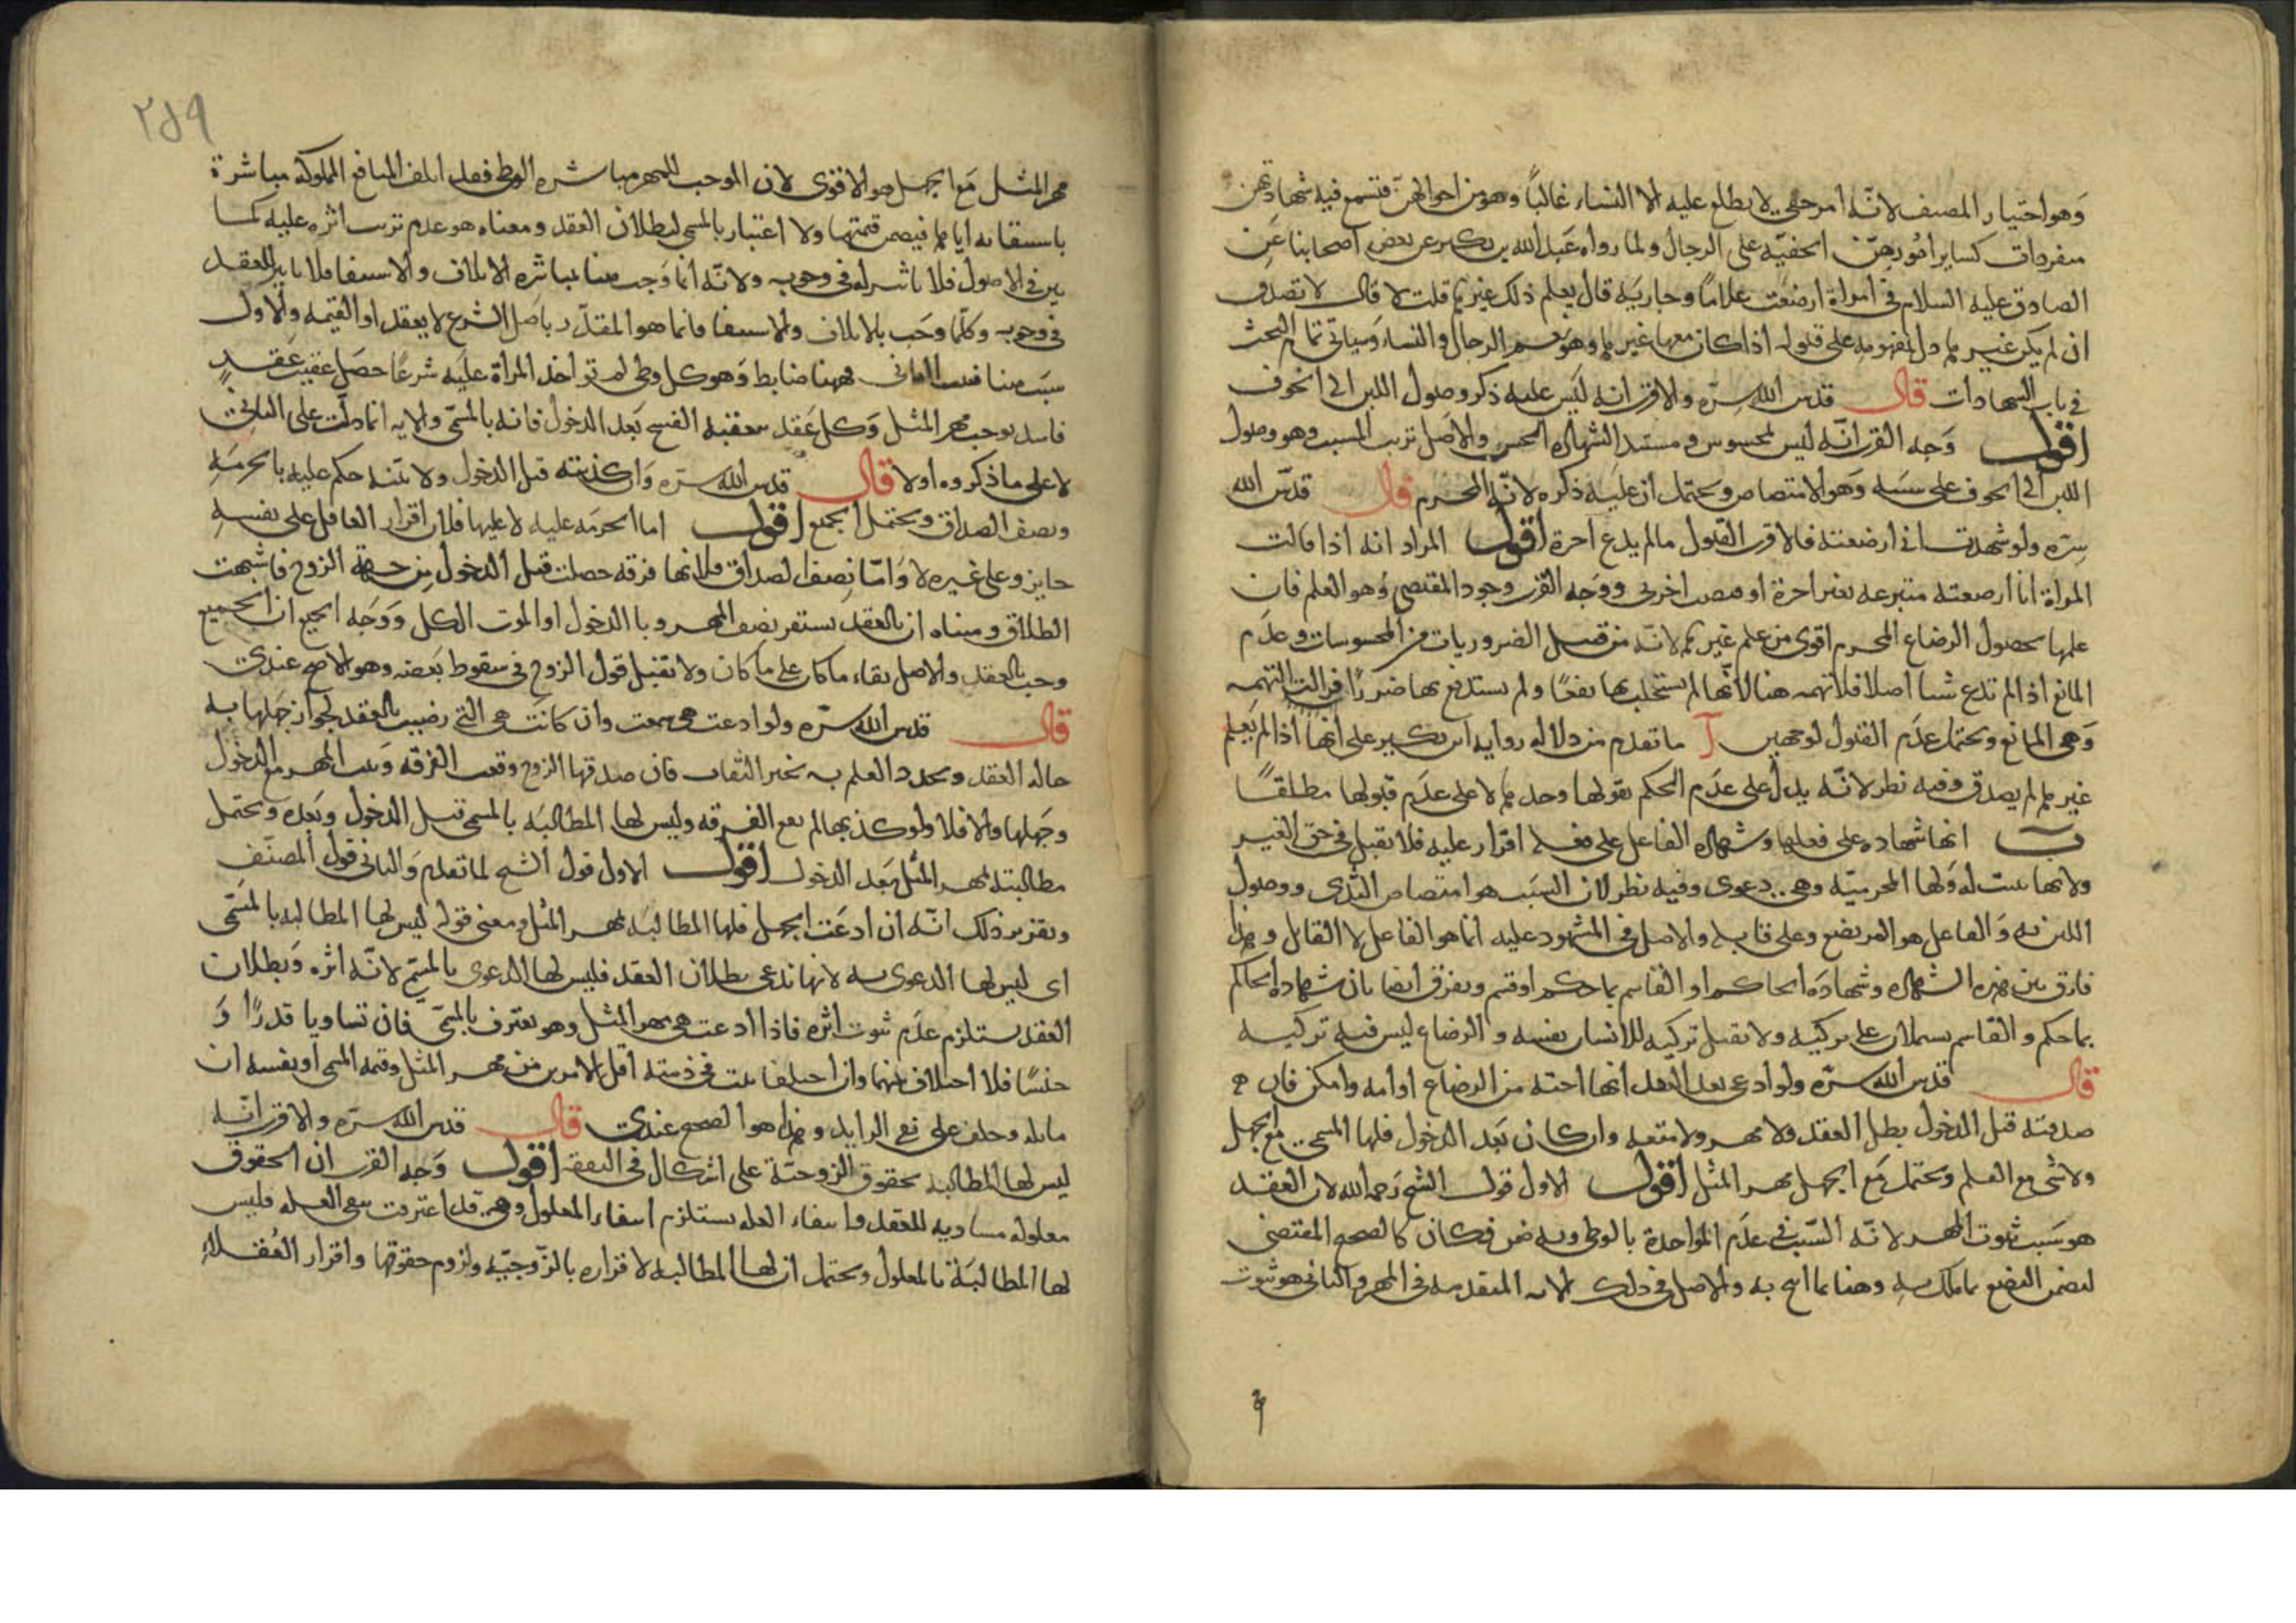 وهو اختيار المصنف لانّه امر خفي لا يطلع عليه الا النساء غالباً وهو من احوالهنّ فتسمع فيه شهادتهن
منفردات كساير امورهنّ الخفيّه على الرجال ولما رواه عبد الله بن بكير عن بعض اصحابنا عن
الصادق عليه السلام في امراة ارضعت غلامًا وجاريه قال يعلم ذلك غيرها قلت لا قال لا تصدق
ان لم يكن غيرها دل بمفهومه على قبوله اذا كان معها غيرها وهو يعم الرجال والنساء وسياتي تمام البحث
في باب الشهادات قال قدس الله سرّه والاقرب انه ليس عليه ذكر وصول اللبن الى الجوف
اقول وجه القرب انّه ليس بمحسوس ومستند الشهاده الحس والاصل ترتب المسبب وهو وصول
اللبن الى الجوف على سببه وهو الامتصاص ويحتمل ان عليه ذكره لانّه المحرم قال قدّس الله
سرّه ولو شهدت باني ارضعته فالاقرب القبول ما لم يدع اجرة اقول المراد انه اذا قالت
المراة انا ارضعته متبرعه بغير اجرة او اخرى ووجه القرب وجود المقتضي وهو العلم فان
علمها بحصول الرضاع المحرم اقوى من علم غيرها لانّه من قبيل الضروريات من المحسوسات وعدم
المانع اذا لم تدع شيا اصلا فلا تهمه هنا لانّها لم يستجلب بها نفعًا ولم يستدفع بها ضررًا فزالت التهمه
وهي المانع ويحتمل عدم القبول لوجهين آ ما تقدم من دلاله روايه ابن بكير على انها اذا لم يعلم
غيرها لم يصدق وفيه نظر لانّه يدل على عدم الحكم بقولها وحدها لا على عدم قبولها مطلقًا
ب انها شهاده على فعلها وشهاده الفاعل على فعله اقرار عليه فلا تقبل في حق الغير
ولانها تثبت له ولها المحرميّه وهي دعوى وفيه نظر لان السبب هو امتصاص الثدي ووصول
اللبن به والفاعل هو المرتضع وعلى قابله والاصل في المشهود عليه انما هو الفاعل لا القابل وهذا
فارق بين هذه الشهاده وشهادة الحاكم او القاسم بما حكم او قسم ويفرق ايضا بان شهاده الحاكم
بما حكم والقاسم يشملان على تزكيه ولا تقبل تزكيه للانسان نفسه والرضاع ليس فيه تزكيه
قال قدس الله سرّه ولو ادعى بعد العقد انها اخته من الرضاع او امه وامكن فان
صدقته قبل الدخول بطل العقد ولا مهر ولا متعه وان كان بعد الدخول فلها المسمى مع الجهل
ولا شي مع العلم ويحتمل مع الجهل مهر المثل اقول الاول قول الشيخ رحمه الله لان العقد
هو سبب ثبوت المهر لانّه السبب في عدم المواخذة بالوطي وبه ضمن فكان كالصحيح المقتضي
لضمن البضع بما ملك به وهنا بما ابيح به والاصل في ذلك الايه المتقدمه في المهر والثاني هو ثبوت
٢٨٩
مهر المثل مع الجهل هو الاقوى لان الموجب للمهر مباشره الوطي فقد اتلف المنافع المملوكه مباشرة
باستيفائه اياها فيضمن قيمتها ولا اعتبار بالمسمى لبطلان العقد ومعناه هو عدم ترتب اثره عليه كما
بين في الاصول فلا تاثير له في وجوبه ولانّه انما وجب هنا بمباشره الاتلاف والاستيفا فلا تاثير للعقد
في وجوبه وكلما وجب بالاتلاف والاستيفا فانما هو المقدّر باصل الشرع لا بعقد او القيمه والاول
سبب هنا فثبت الثاني فهنا ضابط وهو كل وطي لم تواخذ المراة عليه شرعًا حصل عقيب عقد
فاسد يوجب مهر المثل وكل عقد يتعقبه الفسخ بعد الدخول فانه بالمسمّى والايه انما دلّت على الثاني
لا على ما ذكروه اولا قال قدس الله سرّه وان كذبته قبل الدخول ولا بيّنه حكم عليه بالحرمه
ونصف الصداق ويحتمل الجميع اقول اما الحرمه عليه لا عليها فلان اقرار العاقل على نفسه
جايز وعلى غيره لا وامّا نصف الصداق فلانها فرقه حصلت قبل الدخول من جهة الزوج فاشبهت
الطلاق ومبناه ان بالعقد يستقر نصف المهر وبالدخول او الموت الكل ووجه الجميع ان الجميع
وجب بالعقد والاصل بقاء ما كان على ما كان ولا تقبل قول الزوج في سقوط بعضه وهو الاصح عندي
قال قدس الله سرّه ولو ادعت هي سمعت وان كانت هي التي رضيت بالعقد لجواز جهلها به
حاله العقد وتجدد العلم به بخبر الثقات فان صدقها الزوج وقعت الفرقه وثبت المهر مع الدخول
وجهلها والا فلا ولو كذبها لم تقع الفرقه وليس لها المطالبه بالمسمى قبل الدخول وبعده ويحتمل
مطالبته بمهر المثل بعد الدخول اقول الاول قول الشيخ لما تقدم والثاني قول المصنّف
وتقرير ذلك انّه ان ادعت الجهل فلها المطالبه بمهر المثل ومعنى قوله ليس لها المطالبه بالمسمّى
اى ليس لها الدعوى به لانها تدعى بطلان العقد فليس لها الدعوى بالمسمى لانّه اثره وبطلان
العقد يستلزم عدم ثبوت اثره فاذا ادعت هي مهر المثل وهو يعترف بالمسمّى فان تساويا قدرًا و
جنسًا فلا اختلاف بينهما وان اختلفا ثبت في ذمته اقل الامرين من مهر المثل وقيمه المسمى او نفسه ان
ماثله وحلف على نفي الزايد وهذا هو الصحيح عندي قال قدس الله سرّه والاقرب انّه
ليس لها المطالبه بحقوق الزوجيّة على اشكال في النفقه اقول وجه القرب ان الحقوق
معلوله مساويه للعقد وانتفاء العله يستلزم انتفاء المعلول وهي قد اعترفت بنفي العله فليس
لها المطالبة بالمعلول ويحتمل ان لها المطالبه لاقراره بالزّوجيّه ولزوم حقوقها واقرار العقلاء